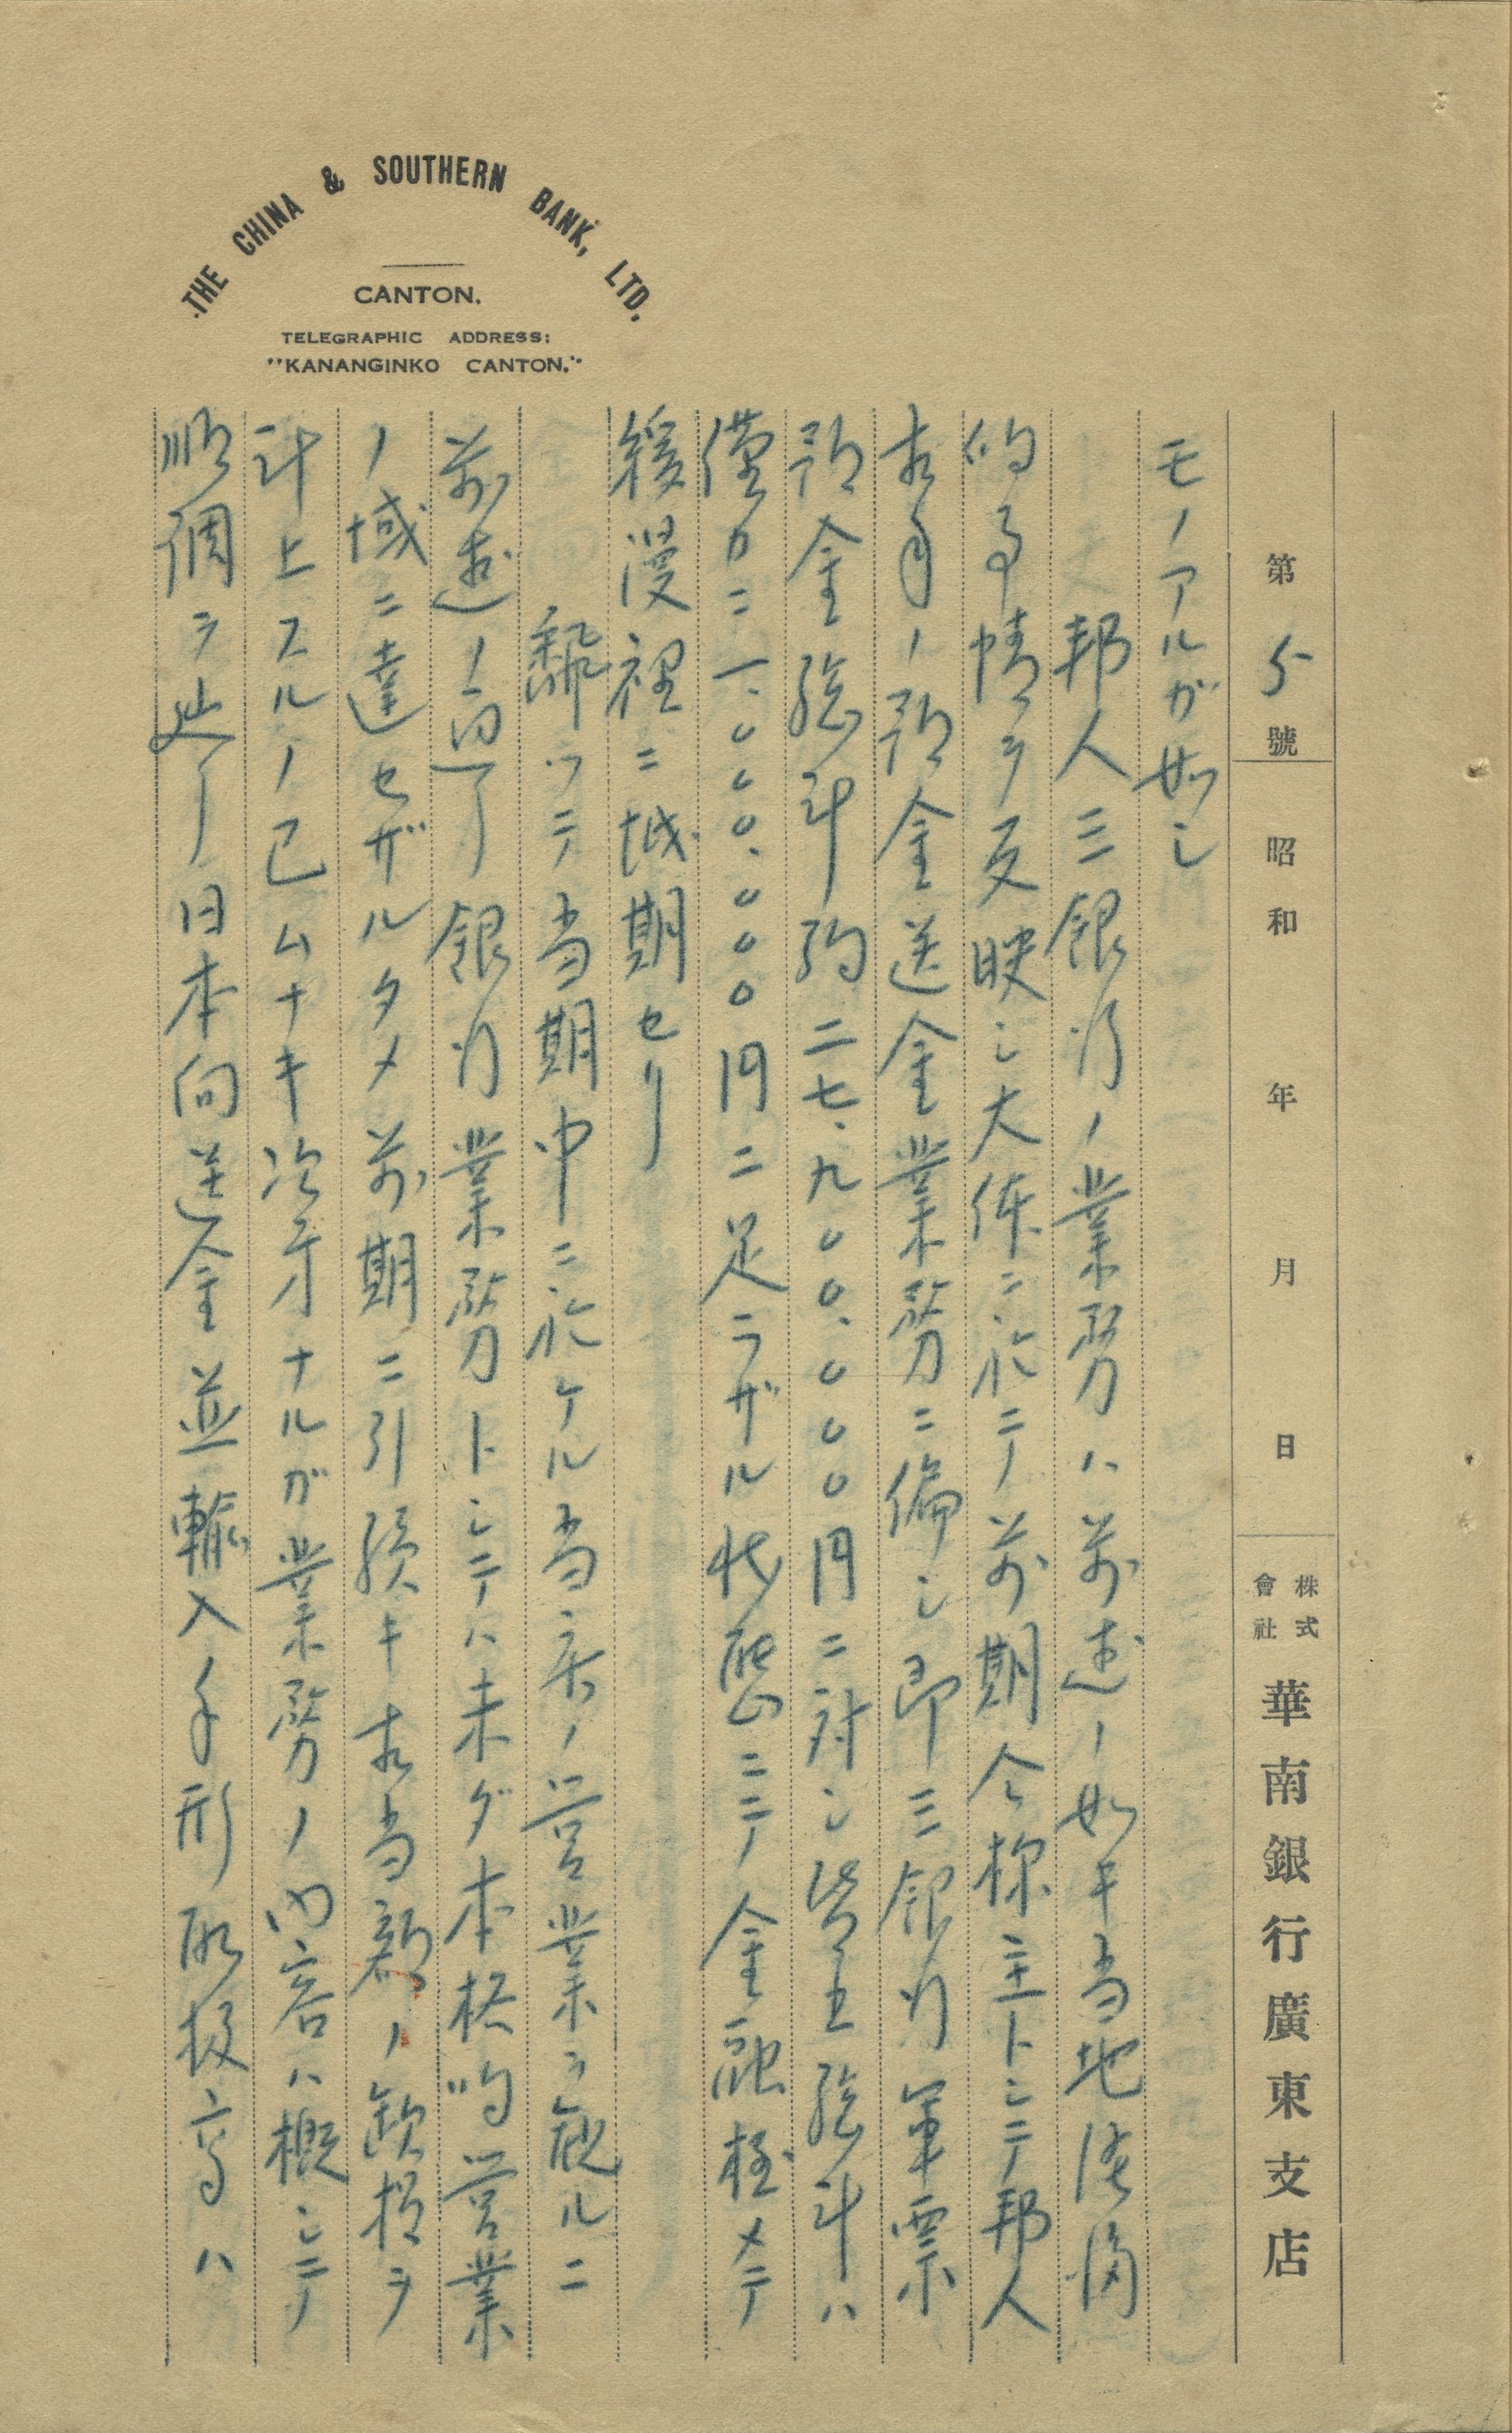 THE CHINA & SOUTHERN BANK, LTD.
CANTON.
TELEGRAPHIC ADDRESS:
"KANANGINKO CANTON."
第 5 號 昭和 年 月 日 株式會社 華南銀行廣東支店
モノアルガ如シ
邦人三銀行ノ業務ハ前述ノ如キ当地
的事情ヲ反映シ大体ニ於テ前期仝様主トシテ邦人
相手ノ預金送金業務ニ偏シ即三銀行軍票
預金総計約二七、九〇〇、〇〇〇円ニ対シ貸出総計ハ
僅カニ一、〇〇〇、〇〇〇円ニ足ラザル状態ニテ金融極メテ
緩漫裡ニ越期セリ
飜ツテ当期中ニ於ケル当店ノ営業ヲ観ルニ
前述ノ通リ銀行業務トシテハ未ダ本格的営業
ノ域ニ達セザルタメ前期ニ引続キ相当額ノ欠損ヲ
計上スルノ已ムナキ次才ナルガ業務ノ内容ハ概シテ
順調ヲ辿リ日本向送金並輸入手形取扱高ハ